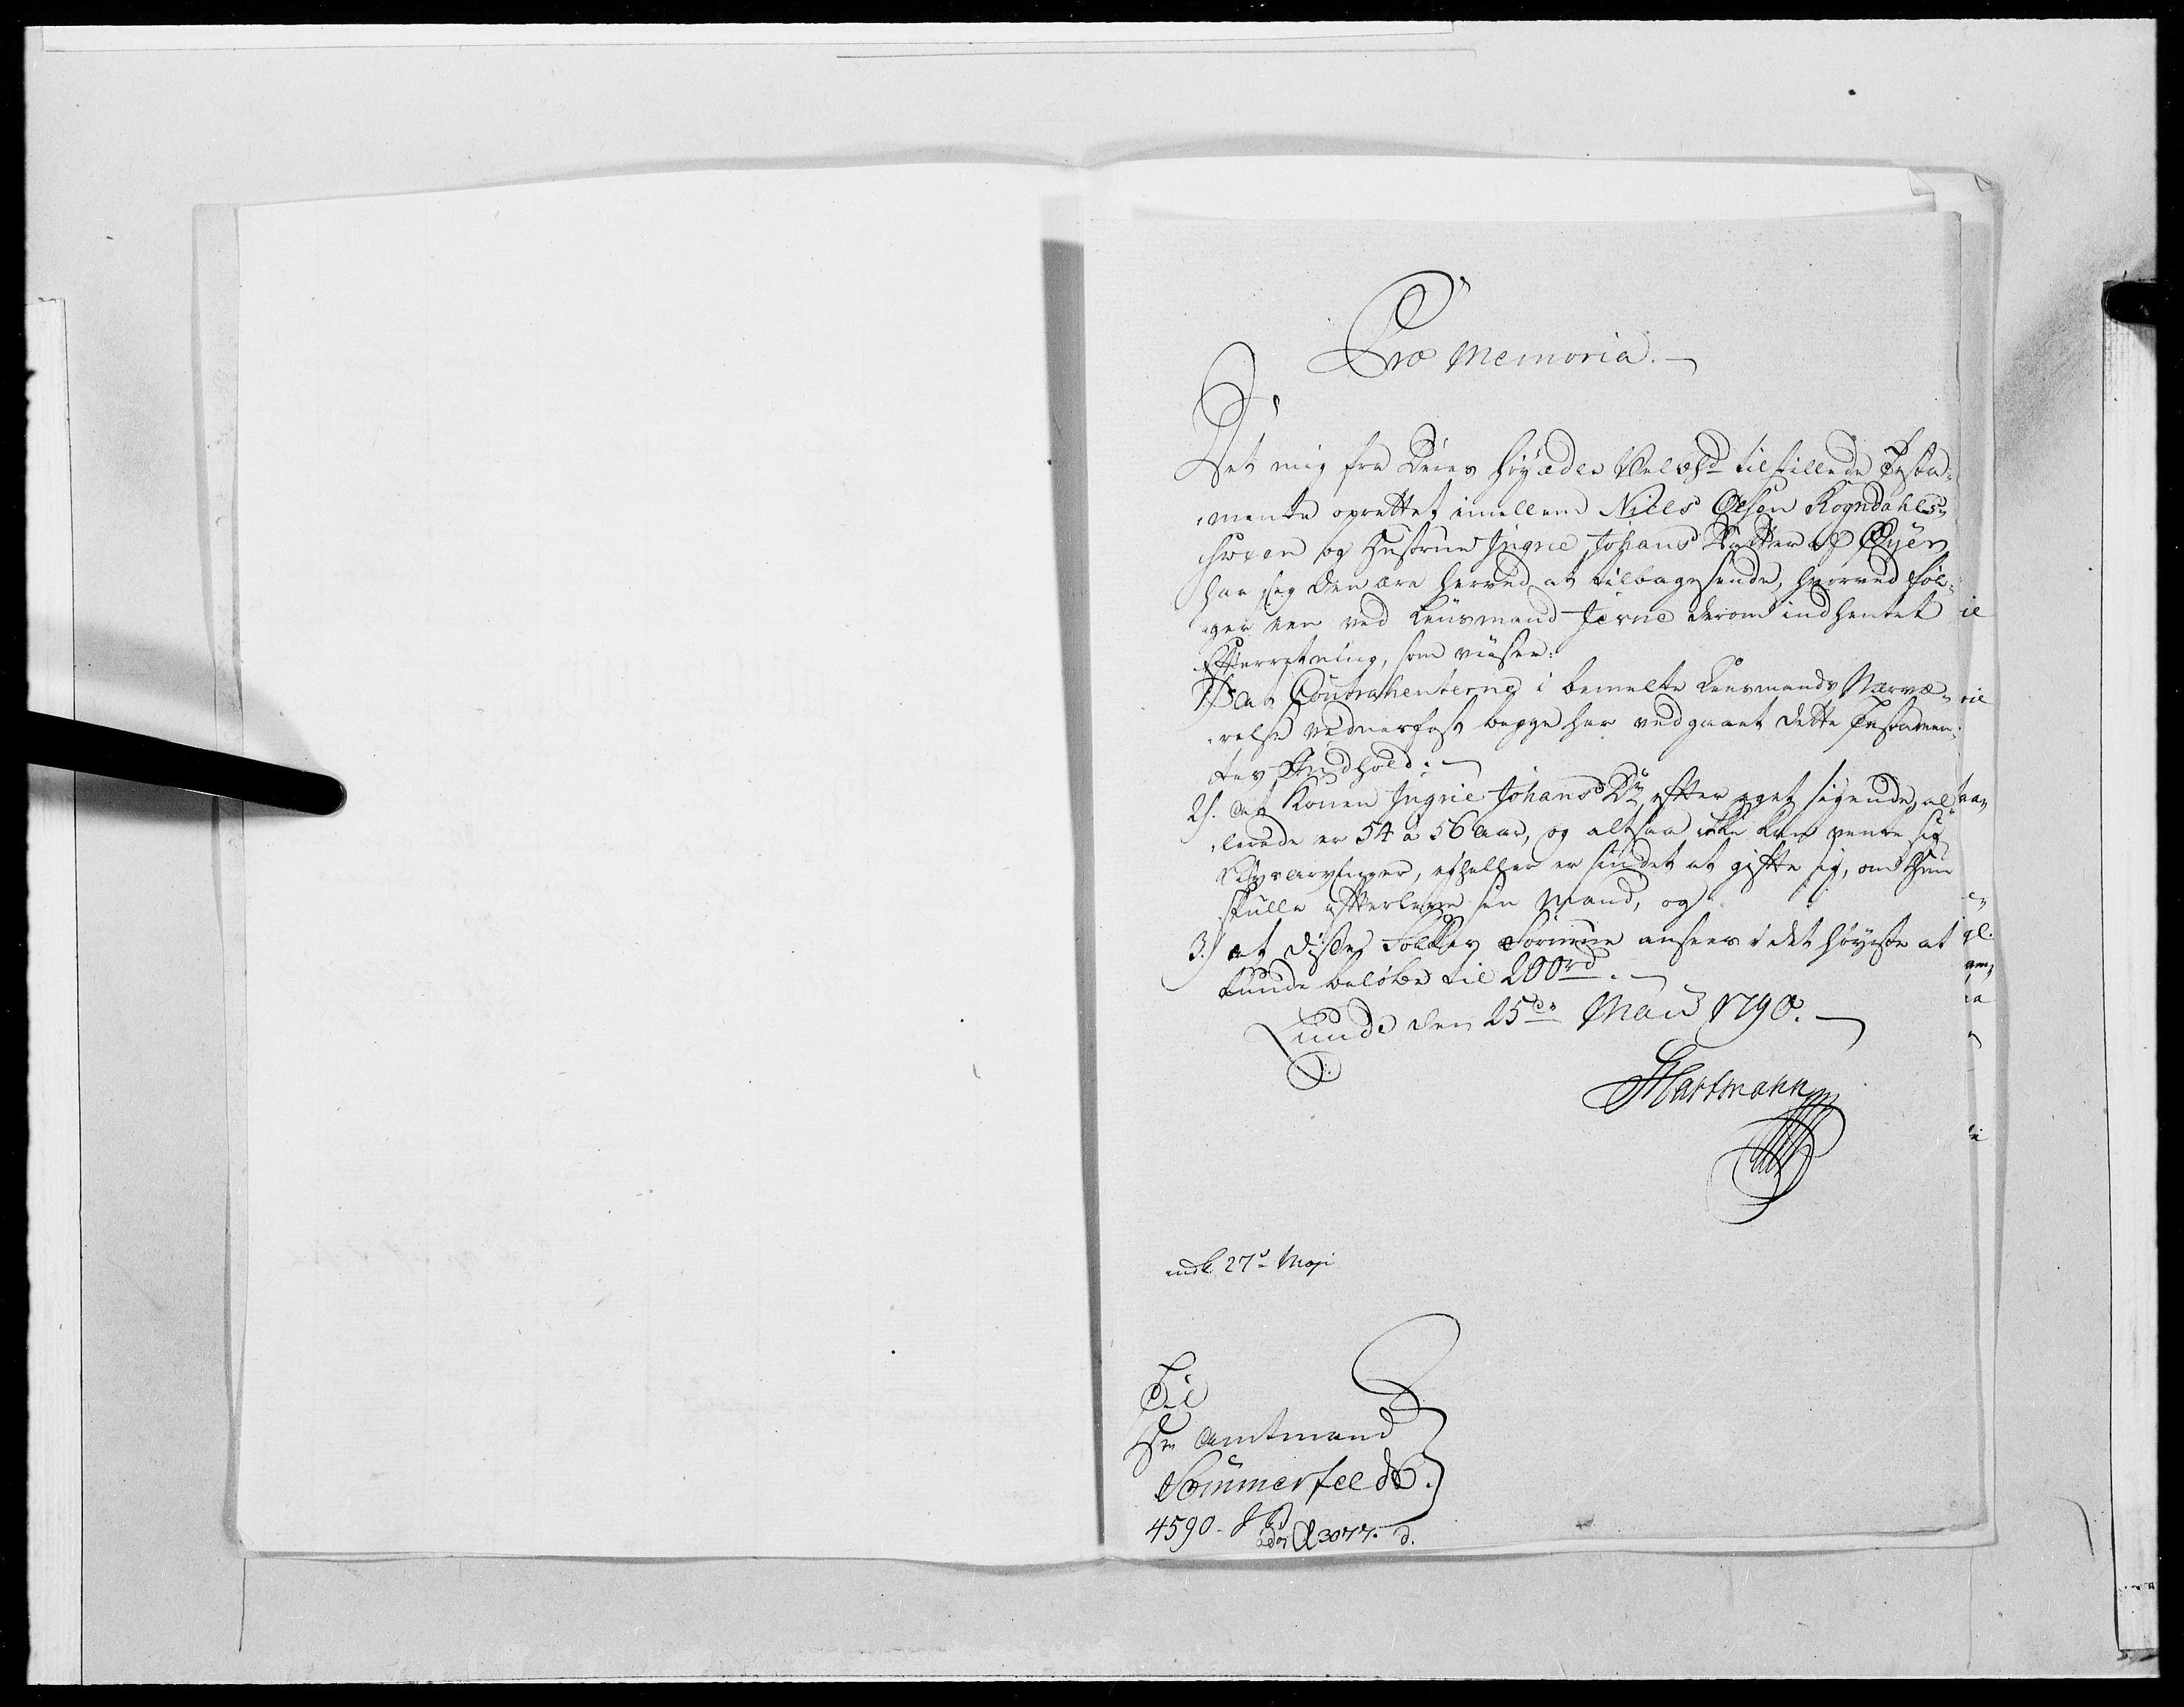 Pro Memoria.
Det mig fra Deres Høyædle Velbhd tilstillede Testa-
mente oprettet imellem Niels Olsen Rogndahls
hwen og Hustrue Ingrie Johans Datter af Øyer
har jeg den ære herved at tilbagesende, hvorved føl-
ger een ved Lensmand Jerne derom indhentet
Efterretning, som viiser:
1) at Contrahenterne i bemelte Lensmands Nærvæ-
relse vednerfast begge har vedgaaet dette Testamen-
tes Indhold.
2). at Konen Ingrie Johans Dr efter eget sigende, al-
lerede er 54 a 56 Aar, og altsaa ikke kan vente sig
Livsarvinger, ejheller er sindet at gifte sig, om Hun
skulle efterleve sin Mand, og
3.) at disse Folkes Formue ansees i det høyeste at
kunde beløbe til 200rd.
Lunde den 25de Maii 1790.
Hartmann
indk 27d Maji
Til
Hr Amtmand
Sommerfeldt.
4590
3077. d.